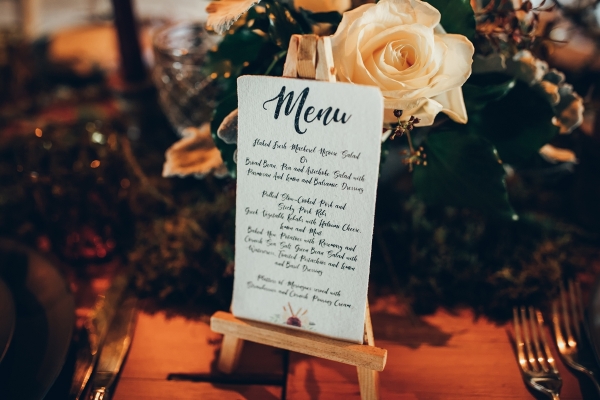 Menu
Flaked Fresh Mackerel Niçoise Salad
Or
Broad Bean, Pea and Artichoke Salad with
Parmesan And Lemon and Balsamic Dressing
Pulled Slow-Cooked Pork and
Sticky Pork Ribs
Greek Vegetable Kebabs with Halloumi Cheese,
Lemon and Mint
Baked New Potatoes with Rosemary and
Cornish Sea Salt Green Bean Salad with
Watercress, Toasted Pistachios and Lemon
and Basil Dressing
Platters of Meringues served with
Strawberries and Cornish Pouring Cream.